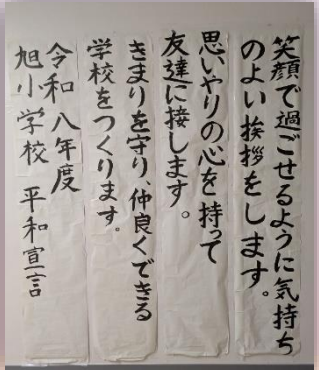 笑顔で過ごせるように気持ち
のよい挨拶をします。
思いやりの心を持って
友達に接します。
きまりを守り、仲良くできる
学校をつくります。
令和八年度
旭小学校 平和宣言